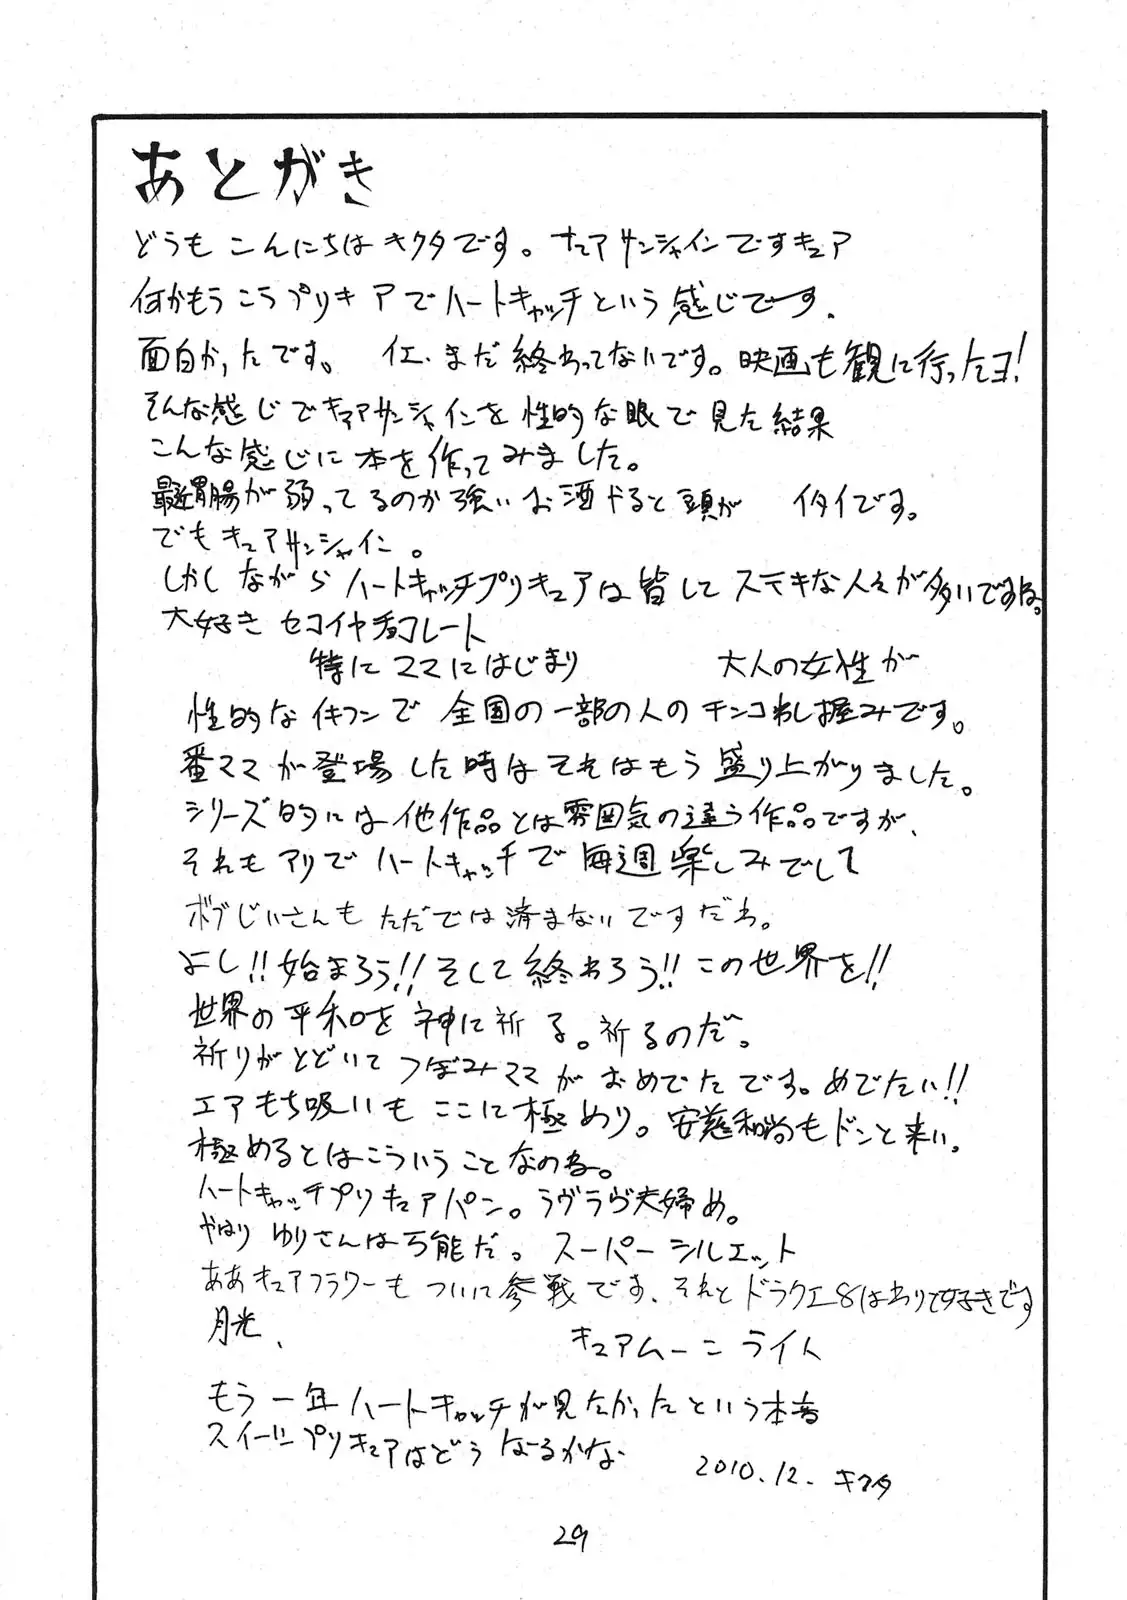 あとがき
どうもこんにちはキクタです。キュアサンシャインですキュア
何かもうこうプリキュアでハートキャッチという感じです.
面白かったです。 イエ、まだ終わってないです。映画も観に行ったヨ!
そんな感じでキュアサンシャインを性的な眼で見た結果
こんな感じに本を作ってみました。
最近胃腸が弱ってるのか強いお酒やると頭が イタイです。
でもキュアサンシャイン。
しかしながらハートキャッチプリキュアは皆してステキな人々が多いですね。
大好きセコイヤチョコレート
特にママにはじまり 大人の女性が
性的なイキフンで全国の一部の人のチンコわし握みです。
番ママが登場した時はそれはもう盛り上がりました。
シリーズ的には他作品とは雰囲気の違う作品ですが、
それもアリでハートキャッチで毎週楽しみでして
ボブじいさんもただでは済まないですだわ。
よし!!始まろう!!そして終わろう!!この世界を!!
世界の平和を神に祈る。祈るのだ。
祈りがとどいてつぼみママがおめでたです。めでたい!!
エアもち吸いもここに極めり。安慈和尚もドンと来い。
極めるとはこういうことなのね。
ハートキャッチプリキュアパン。ラヴラヴ夫婦め。
やはりゆりさんは万能だ。スーパーシルエット
ああキュアフラワーもついに参戦です、それとドラクエ8はわりと好きです
月光、 キュアムーンライト
もう一年ハートキャッチが見たかったという本音
スイートプリキュアはどうなるかな
2010.12. キクタ
29